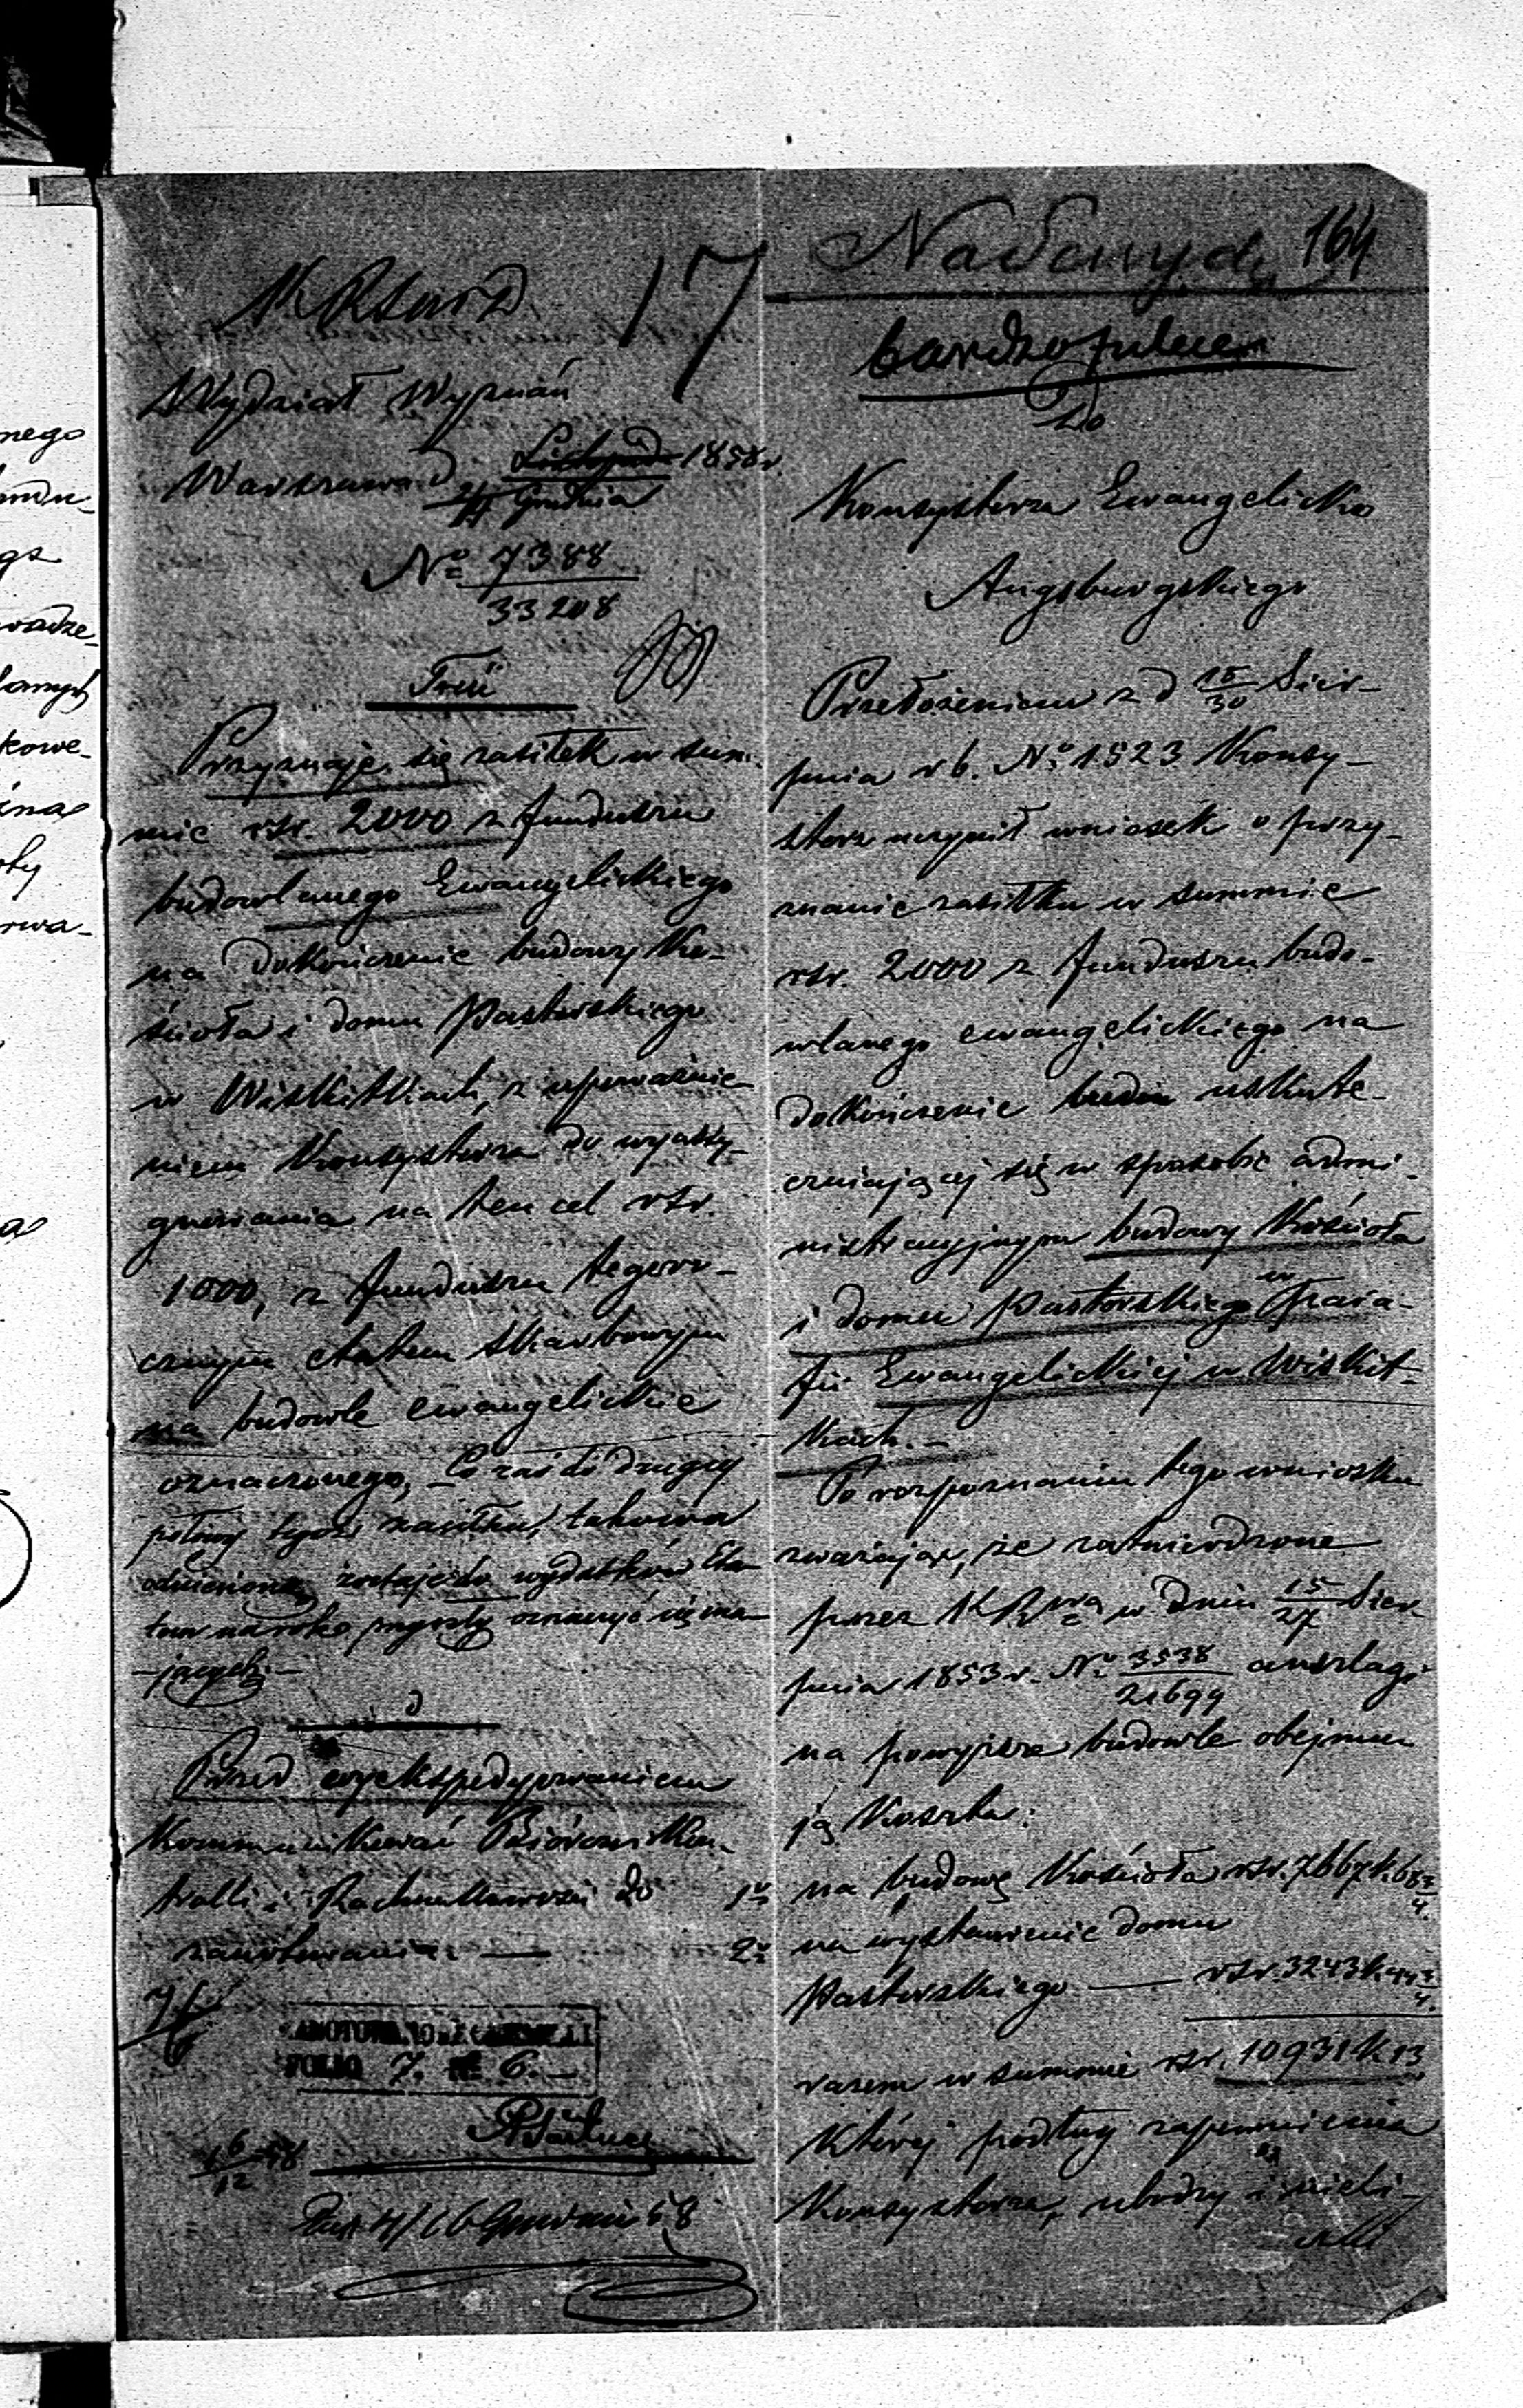 17
Wydział Wyznań
Warszawa d Listopada 1858 r
Grudnia
No 7388
33208
Treść
Przyznaje się zasiłek w sum-
mie rsr. 2000 z funduszu
budowlanego Ewangelickiego
na dokończenie budowy Ko-
ścioła i domu Pastorskiego
w Wiskitkach, z upoważnie-
niem Konsystorza do wyassy-
gnowania na ten cel rsr.
1000, z funduszu tegoro-
cznym etatem Skarbowym
na budowle ewangelickie
oznaczonego, – Co zaś do drugiej
połowy tegoż zasiłku, takowa
odniesioną zostaje do wydatków Eta-
tem na rok przyszły oznaczyć się ma-
-jących. –
Przed wyekspedyowaniem
kommunikować Bióru Kon-
trolli i Rachunkowości do
zanotowania –
ZANOTOWANO w KONTROLLI
FOLIO 7. No 6. –
6/12 58
164
Na dawnych
bardzo pilne
Do
Konsystorza Ewangelicko
Augsburgskiego
Przełożeniem z d 18/30 Sier-
pnia r b. No 1523 Konsy-
storz uczynił wniosek o przy-
znanie zasiłku w summie
rsr. 2000 z funduszu budo-
wlanego ewangelickiego na
dokończenie uskute-
czniającej się w sposobie admi-
nistracyjnym budowy Kościoła
i domu Pastorskiego w para-
fii Ewangelickiej w Wiskit-
kach. –
Po rozpoznaniu tego wniosku
zważając, że zatwierdzone
przez K R w dniu 15/27 Sier-
pnia 1853 r. No 3538/21699 anszlagi
na powyższe budowle obejmu
ją koszta:
1o na budowę Kościoła rsr. 7667 k. 68 3/4
2o na wystawienie domu
Pastorskiego — rsr. 3243 k. 44 1/4.
razem w summie rsr. 10931 k 13
której podług zapewnienia
Konsystorza, ubodzy i nieli-